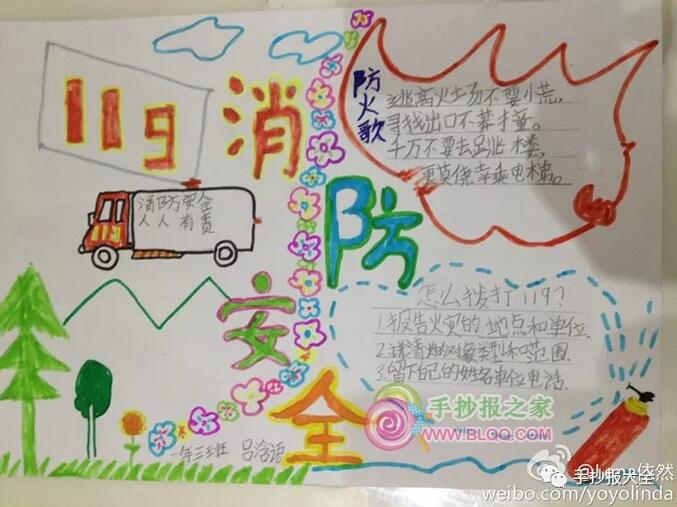 119
消防安全
消防安全
人人有责
防火歌
逃离火场不要慌,
寻找出口不莽撞。
千万不要去跳楼,
更莫侥幸乘电梯。
怎么拨打119?
1.报告火灾的地点和单位
2.讲清火的对象类型和范围
3.留下自己的姓名单位电话.
一年三班
手抄报之家
WWW.BLOQ.COM
手抄报大全
weibo.com/yoyolinda